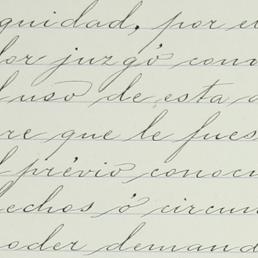 quidad, por e
lor juzgó conv
l uso de esta a
re que le fues
l prévio conoc
echos ó circun
oder demand